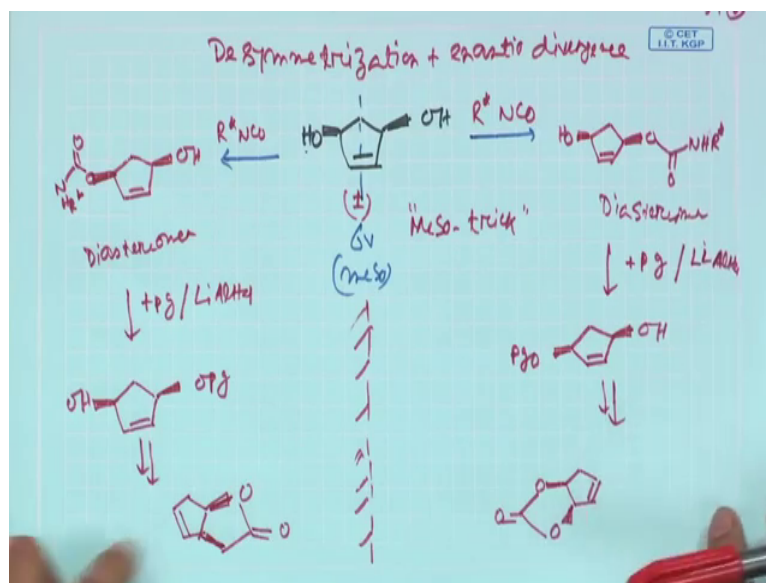 © CET
I.I.T. KGP
Desymmetrization + enantio divergence
R* NCO
HO
OH
R* NCO
O
O
N
HR*
OH
HO
O
NHR*
O
(±)
"Meso-trick"
(meso)
Diastereomer
Diastereomer
+pg / LiAlH4
+pg / LiAlH4
OH
OPg
PgO
OH
O
O
O
O
O